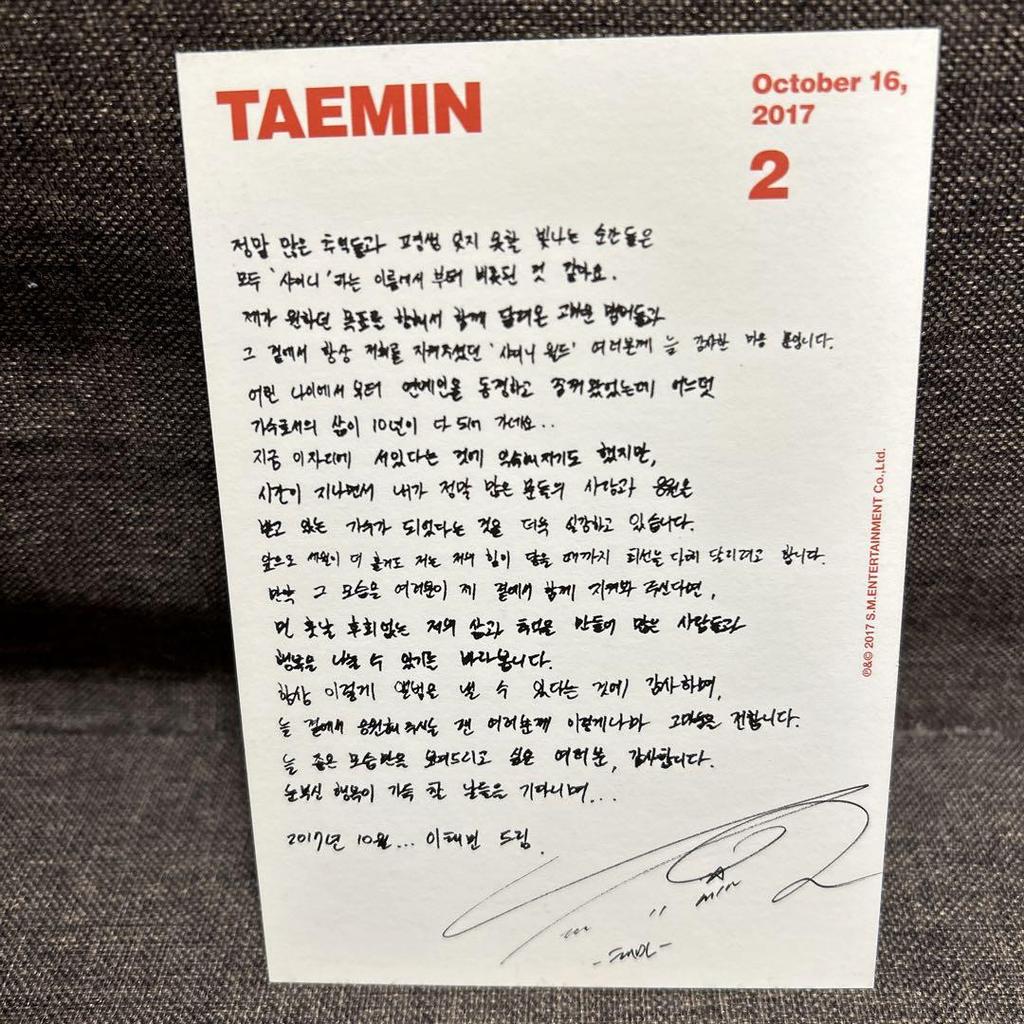 TAEMIN
October 16,
2017
2
정말 많은 추억들과 평생 잊지 못할 빛나는 순간들은
모두 '샤이니'라는 이름에서 부터 비롯된 것 같아요.
제가 원하던 목표를 향해서 함께 달려온 고마운 멤버들과
그 곁에서 항상 저희를 지켜주셨던 '샤이니 월드' 여러분께 늘 감사한 마음 뿐입니다.
어린 나이에서 부터 연예인을 동경하고 꿈꿔왔었는데 어느덧
가수로서의 삶이 10년이 다 되어 가네요..
지금 이자리에 서있다는 것에 익숙해져기도 했지만,
시간이 지나면서 내가 정말 많은 분들의 사랑과 응원을
받고 있는 가수가 되었다는 것을 더욱 실감하고 있습니다.
앞으로 세월이 더 흘러도 저는 제 힘이 닿을 때까지 최선을 다해 달리려고 합니다.
만약 그 모습을 여러분이 제 곁에서 함께 지켜봐 주신다면,
먼 훗날 후회없는 저의 삶과 추억을 만들어 많은 사람들과
행복을 나눌 수 있기를 바라봅니다.
항상 이렇게 앨범을 낼 수 있다는 것에 감사하며,
늘 곁에서 응원해 주시는 팬 여러분께 이렇게나마 고마움을 전합니다.
늘 좋은 모습만을 보여드리고 싶은 여러분, 감사합니다.
눈부신 행복이 가득 한 날들을 기다리며...
2017년 10월... 이태민 드림.
MIN
-태민-
℗&© 2017 S.M.ENTERTAINMENT Co.,Ltd.